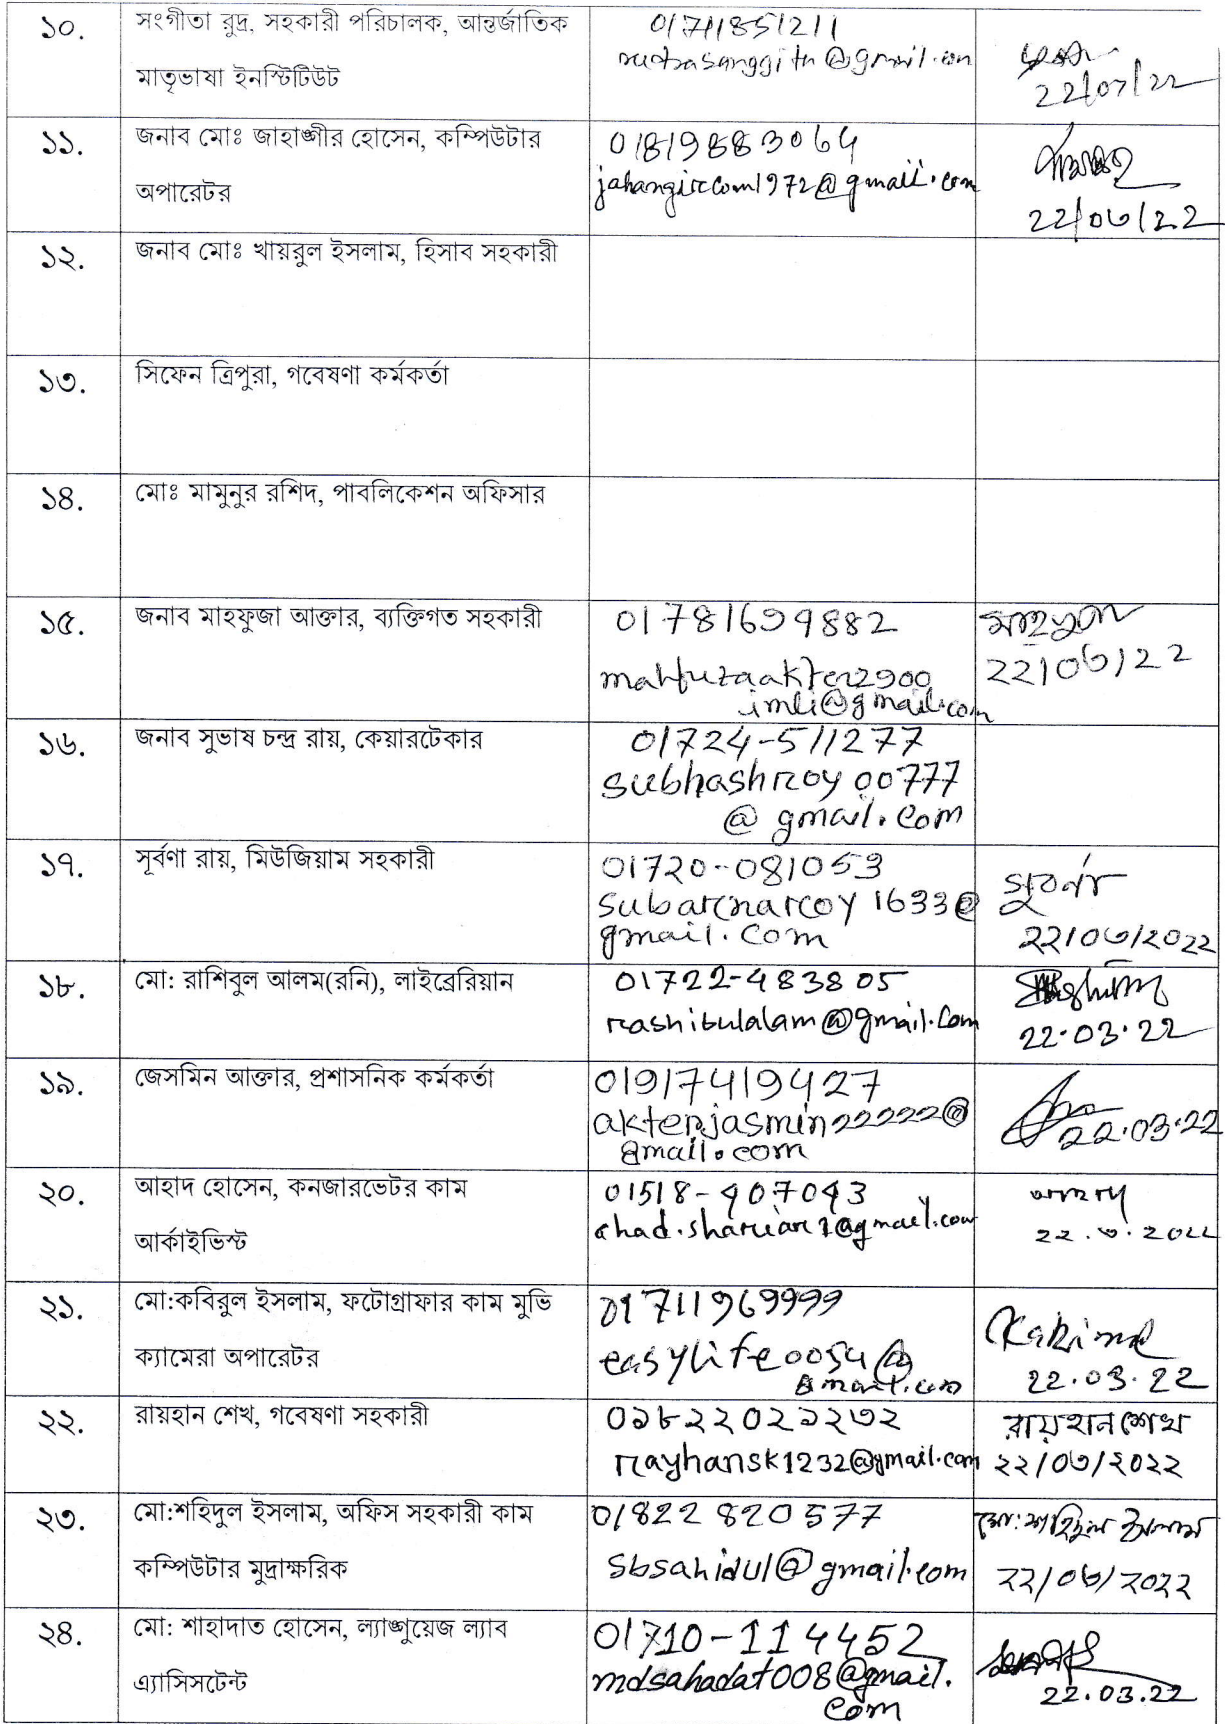 ১০.
সংগীতা রুদ্র, সহকারী পরিচালক, আন্তর্জাতিক
মাতৃভাষা ইনস্টিটিউট
01711851211
22/03/22
১১.
জনাব মোঃ জাহাঙ্গীর হোসেন, কম্পিউটার
অপারেটর
01819883064
jahangircom1972@gmail.com
22/০৩/22
১২.
জনাব মোঃ খায়রুল ইসলাম, হিসাব সহকারী
১৩.
সিফেন ত্রিপুরা, গবেষণা কর্মকর্তা
১৪.
মোঃ মামুনুর রশিদ, পাবলিকেশন অফিসার
১৫.
জনাব মাহফুজা আক্তার, ব্যক্তিগত সহকারী
mahfuzaakter2900
imli@gmail.com
22/০৩/22
১৬.
জনাব সুভাষ চন্দ্র রায়, কেয়ারটেকার
01724-511277
subhashroy00777
@gmail.com
১৭.
সূর্বণা রায়, মিউজিয়াম সহকারী
01720-081053
subarnaroy1633@
gmail.com
সুবর্ণা
২২/০৩/২০২২
১৮.
মো: রাশিবুল আলম(রনি), লাইব্রেরিয়ান
01722-483805
rashibulalam@gmail.com
22.03.22
১৯.
জেসমিন আক্তার, প্রশাসনিক কর্মকর্তা
01917419427
akterjasmin22222@
gmail.com
22.03.22
২০.
আহাদ হোসেন, কনজারভেটর কাম
আর্কাইভিস্ট
ahad.shariar1@gmail.com
২২.৩.২০২২
২১.
মো:কবিরুল ইসলাম, ফটোগ্রাফার কাম মুভি
ক্যামেরা অপারেটর
01711969999
easylife0054@
gmail.com
22.03.22
২২.
রায়হান শেখ, গবেষণা সহকারী
০১৮২২০২১২৩২
rayhansk1232@gmail.com
রায়হান শেখ
২২/০৩/২০২২
২৩.
মো:শহিদুল ইসলাম, অফিস সহকারী কাম
কম্পিউটার মুদ্রাক্ষরিক
01822820577
sbsahidul@gmail.com
মো: শহিদুল ইসলাম
২২/০৩/২০২২
২৪.
মো: শাহাদাত হোসেন, ল্যাঙ্গুয়েজ ল্যাব
এ্যাসিসটেন্ট
01710-114452
mdsahadat008@gmail.
com
22.03.22